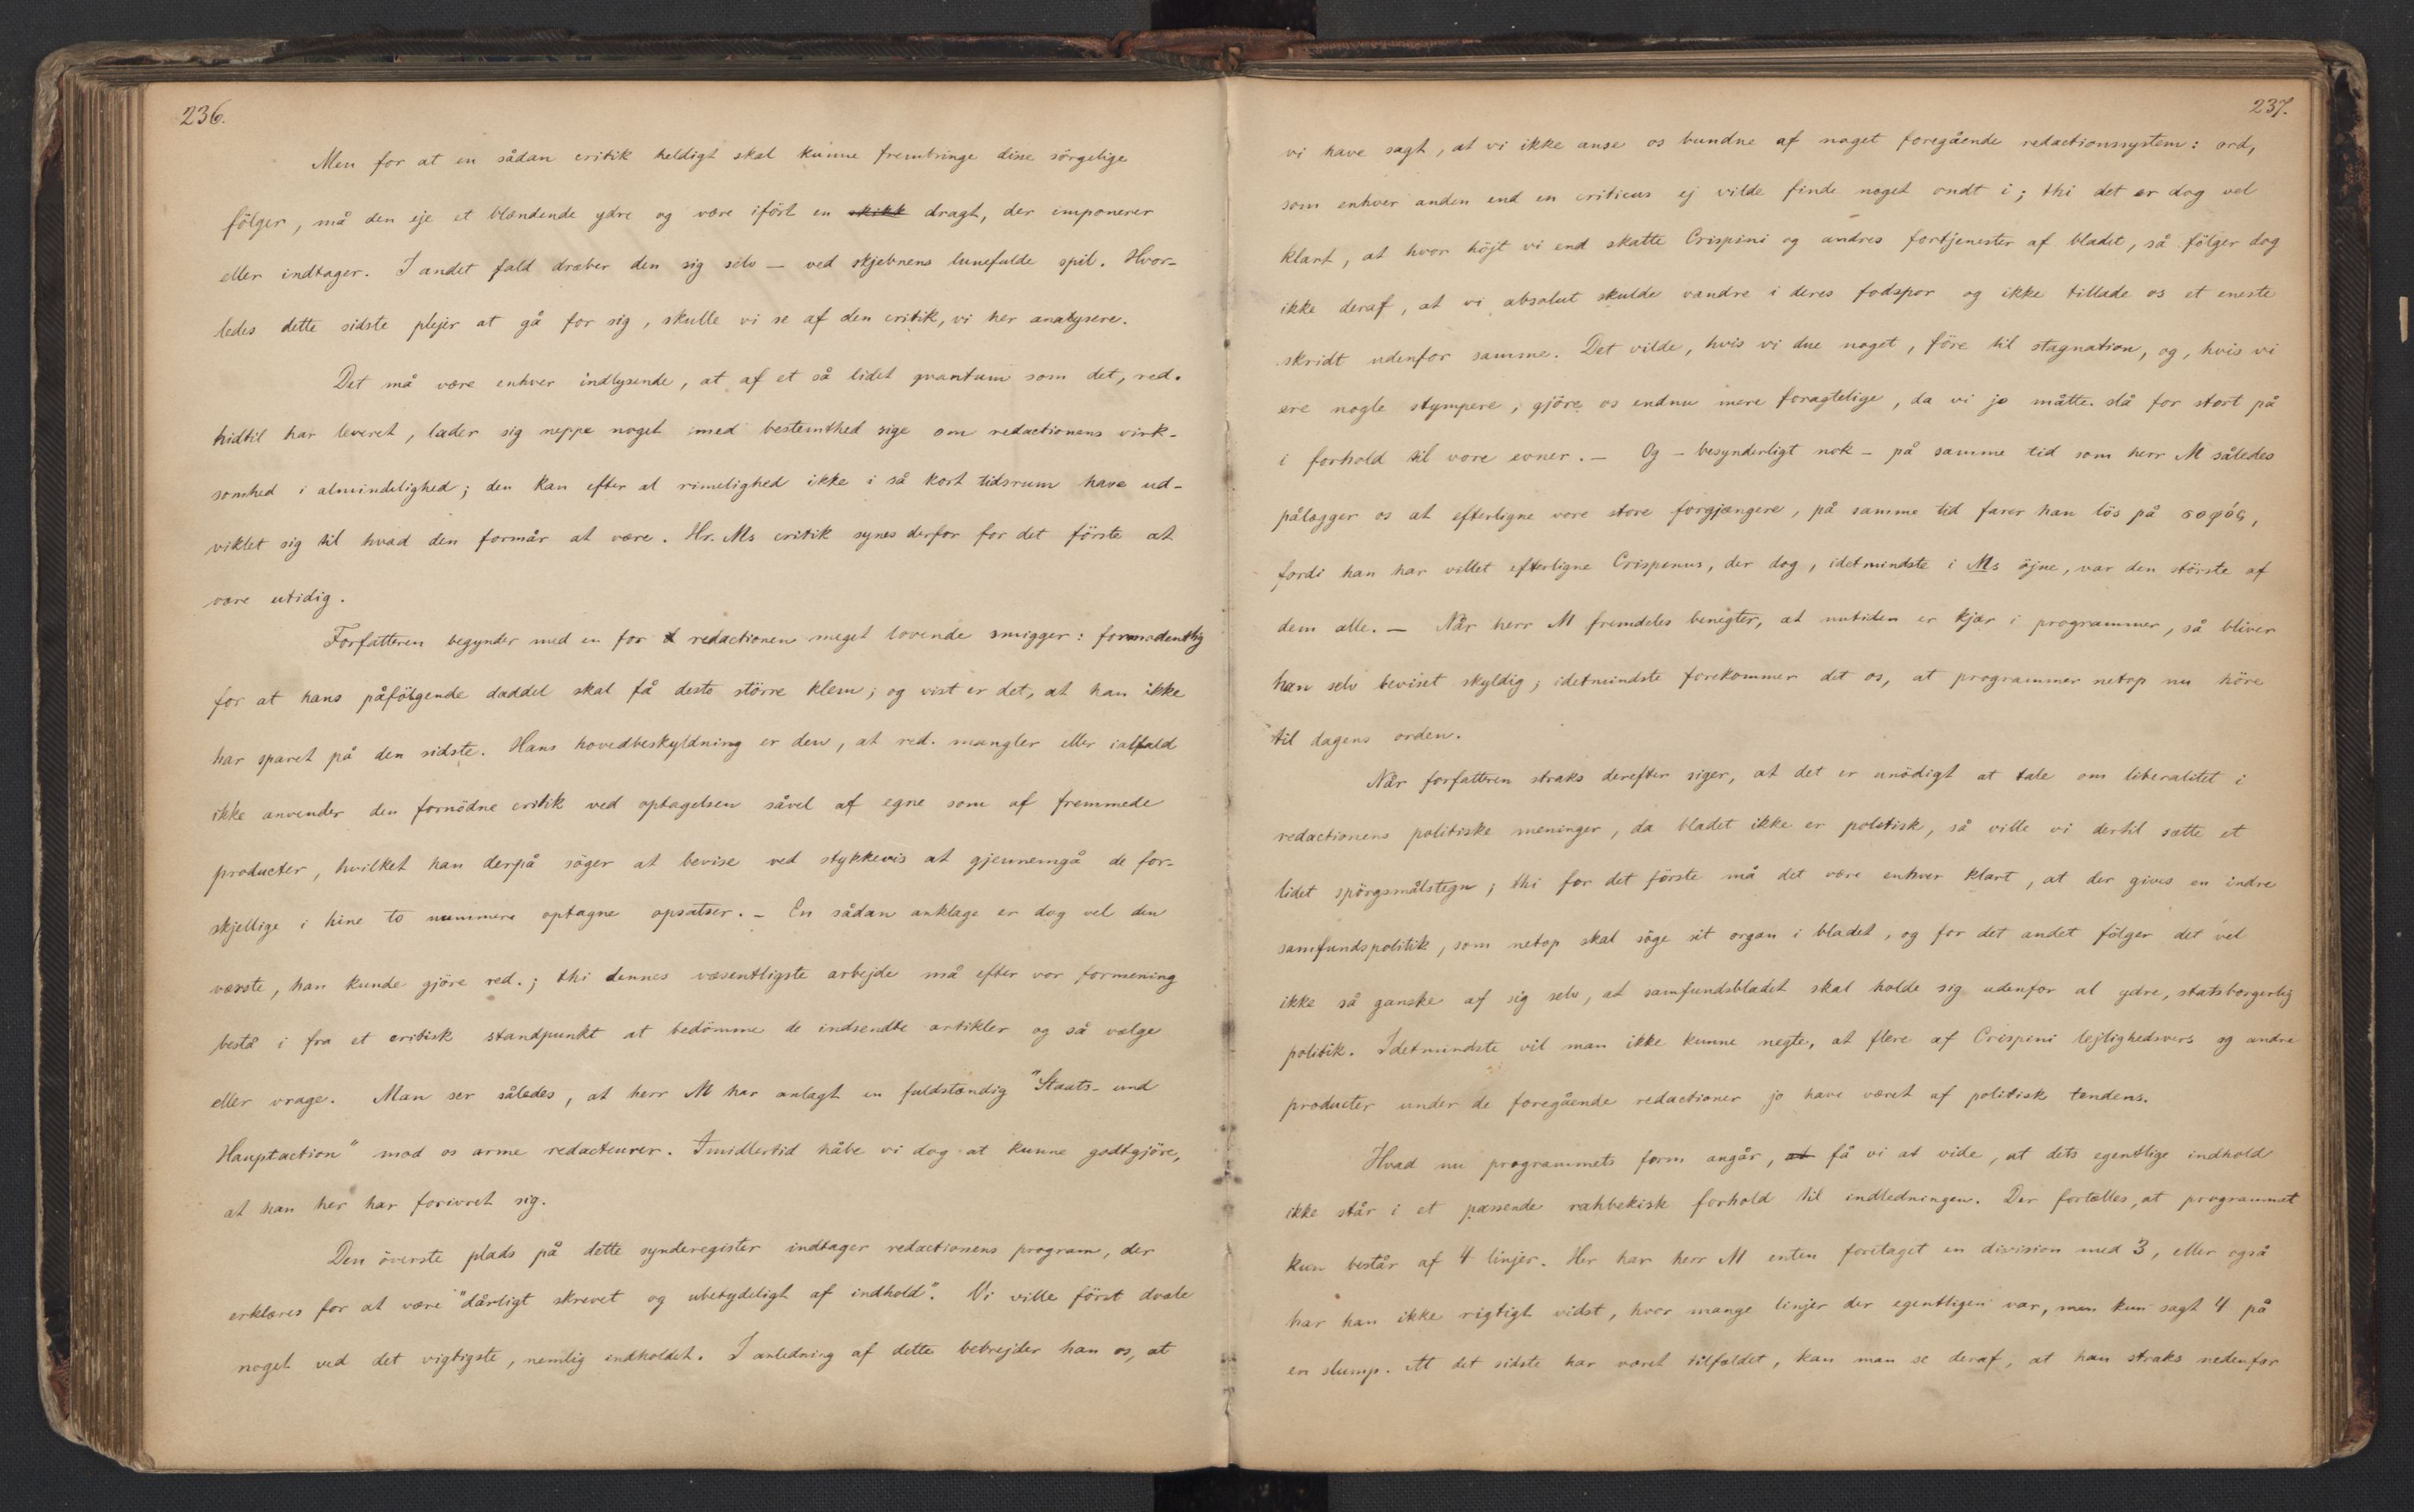 236.
Men for at en sådan critik heldigt skal kunne frembringe disse sörgelige
fölger, må den eje et blændende ydre og være ifört en skikk dragt, der imponerer
eller indtager. I andet fald dræber den sig selv — ved skjebnens lunefulde spil. Hvor-
ledes dette sidste plejer at gå for sig, skulle vi se af den critik, vi her analysere.
Det må være enhver indlysende, at af et så lidet qvantum som det, red.
hidtil har leveret, lader sig neppe noget med bestemthed sige om redactionens virk-
somhed i almindelighed; den kan efter al rimelighed ikke i så kort tidsrum have ud-
viklet sig til hvad den formår at være. Hr. Ms critik synes derfor for det förste at
være utidig.
Forfatteren begynder med en for redactionen meget lovende smigger: formodentlig
for at hans påfölgende daddel skal få desto större klem; og vist er det, at han ikke
har sparet på den sidste. Hans hovedbeskyldning er den, at red. mangler eller ialfald
ikke anvender den fornödne critik ved optagelsen såvel af egne som af fremmede
producter, hvilket han derpå söger at bevise ved stykkevis at gjennemgå de for-
skjellige i hine to nummere optagne opsatser. — En sådan anklage er dog vel den
værste, han kunde gjöre red.; thi dennes væsentligste arbejde må efter vor formening
bestå i fra et critisk standpunkt at bedömme de indsendte artikler og så vælge
eller vrage. Man ser således, at herr M har anlagt en fuldstændig "Staats- und
Hauptaction" mod os arme redacteurer. Imidlertid håbe vi dog at kunne godtgjöre,
at han her har forivret sig.
Den överste plads på dette synderegister indtager redactionens program, der
erklæres for at være "dårligt skrevet og ubetydeligt af indhold". Vi ville först dvæle
noget ved det vigtigste, nemlig indholdet. I anledning af dette bebrejder han os, at
237.
vi have sagt, at vi ikke anse os bundne af noget foregående redactionssystem: ord,
som enhver anden end en criticus ej vilde finde noget ondt i; thi det er dog vel
klart, at hvor höjt vi end skatte Crispini og andres fortjenester af bladet, så fölger dog
ikke deraf, at vi absolut skulde vandre i deres fodspor og ikke tillade os et eneste
skridt udenfor samme. Det vilde, hvis vi due noget, före til stagnation, og, hvis vi
ere nogle stympere, gjöre os endnu mere foragtelige, da vi jo måtte slå for stort på
i forhold til vore evner. — Og — besynderligt nok — på samme tid som herr M således
pålægger os at efterligne vore store forgjængere, på samme tid farer han lös på σοφός,
fordi han har villet efterligne Crispenus, der dog, idetmindste i Ms öjne, var den störste af
dem alle. — Når herr M fremdeles benegter, at nutiden er kjær i programmer, så bliver
han selv beviset skyldig; idetmindste forekommer det os, at programmer netop nu höre
til dagens orden.
Når forfatteren straks derefter siger, at det er unödigt at tale om liberalitet i
redactionens politiske meninger, da bladet ikke er politisk, så ville vi dertil sætte et
lidet spörgsmålstegn; thi for det förste må det være enhver klart, at der gives en indre
samfundspolitik, som netop skal söge sit organ i bladet, og for det andet fölger det vel
ikke så ganske af sig selv, at samfundsbladet skal holde sig udenfor al ydre, statsborgerlig
politik. Idetmindste vil man ikke kunne negte, at flere af Crispini lejlighedsvers og andre
producter under de foregående redactioner jo have været af politisk tendens.
Hvad nu programmets form angår, at få vi at vide, at dets egentlige indhold
ikke står i et passende rahbekisk forhold til indledningen. Der fortælles, at programmet
kun består af 4 linjer. Her har herr M enten foretaget en division med 3, eller også
har han ikke rigtigt vidst, hvor mange linjer der egentligen var, men kun sagt 4 på
en slump. At det sidste har været tilfældet, kan man se deraf, at han straks nedenfor